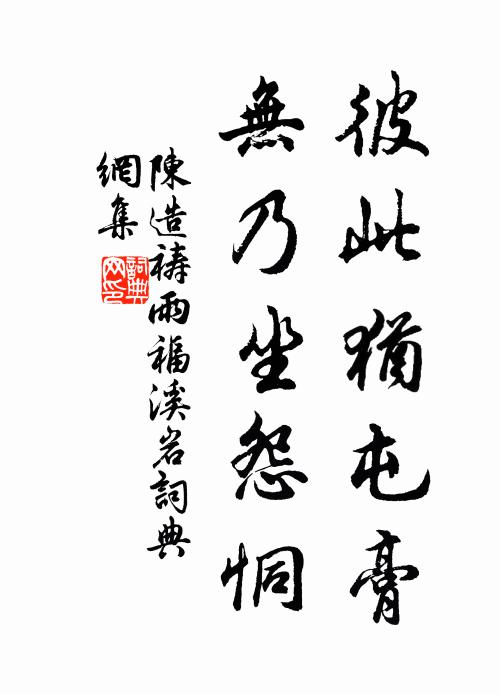 彼此猶屯膏
無乃坐怨恫
陳造禱雨福溪岩詞典
網集
詞典網印